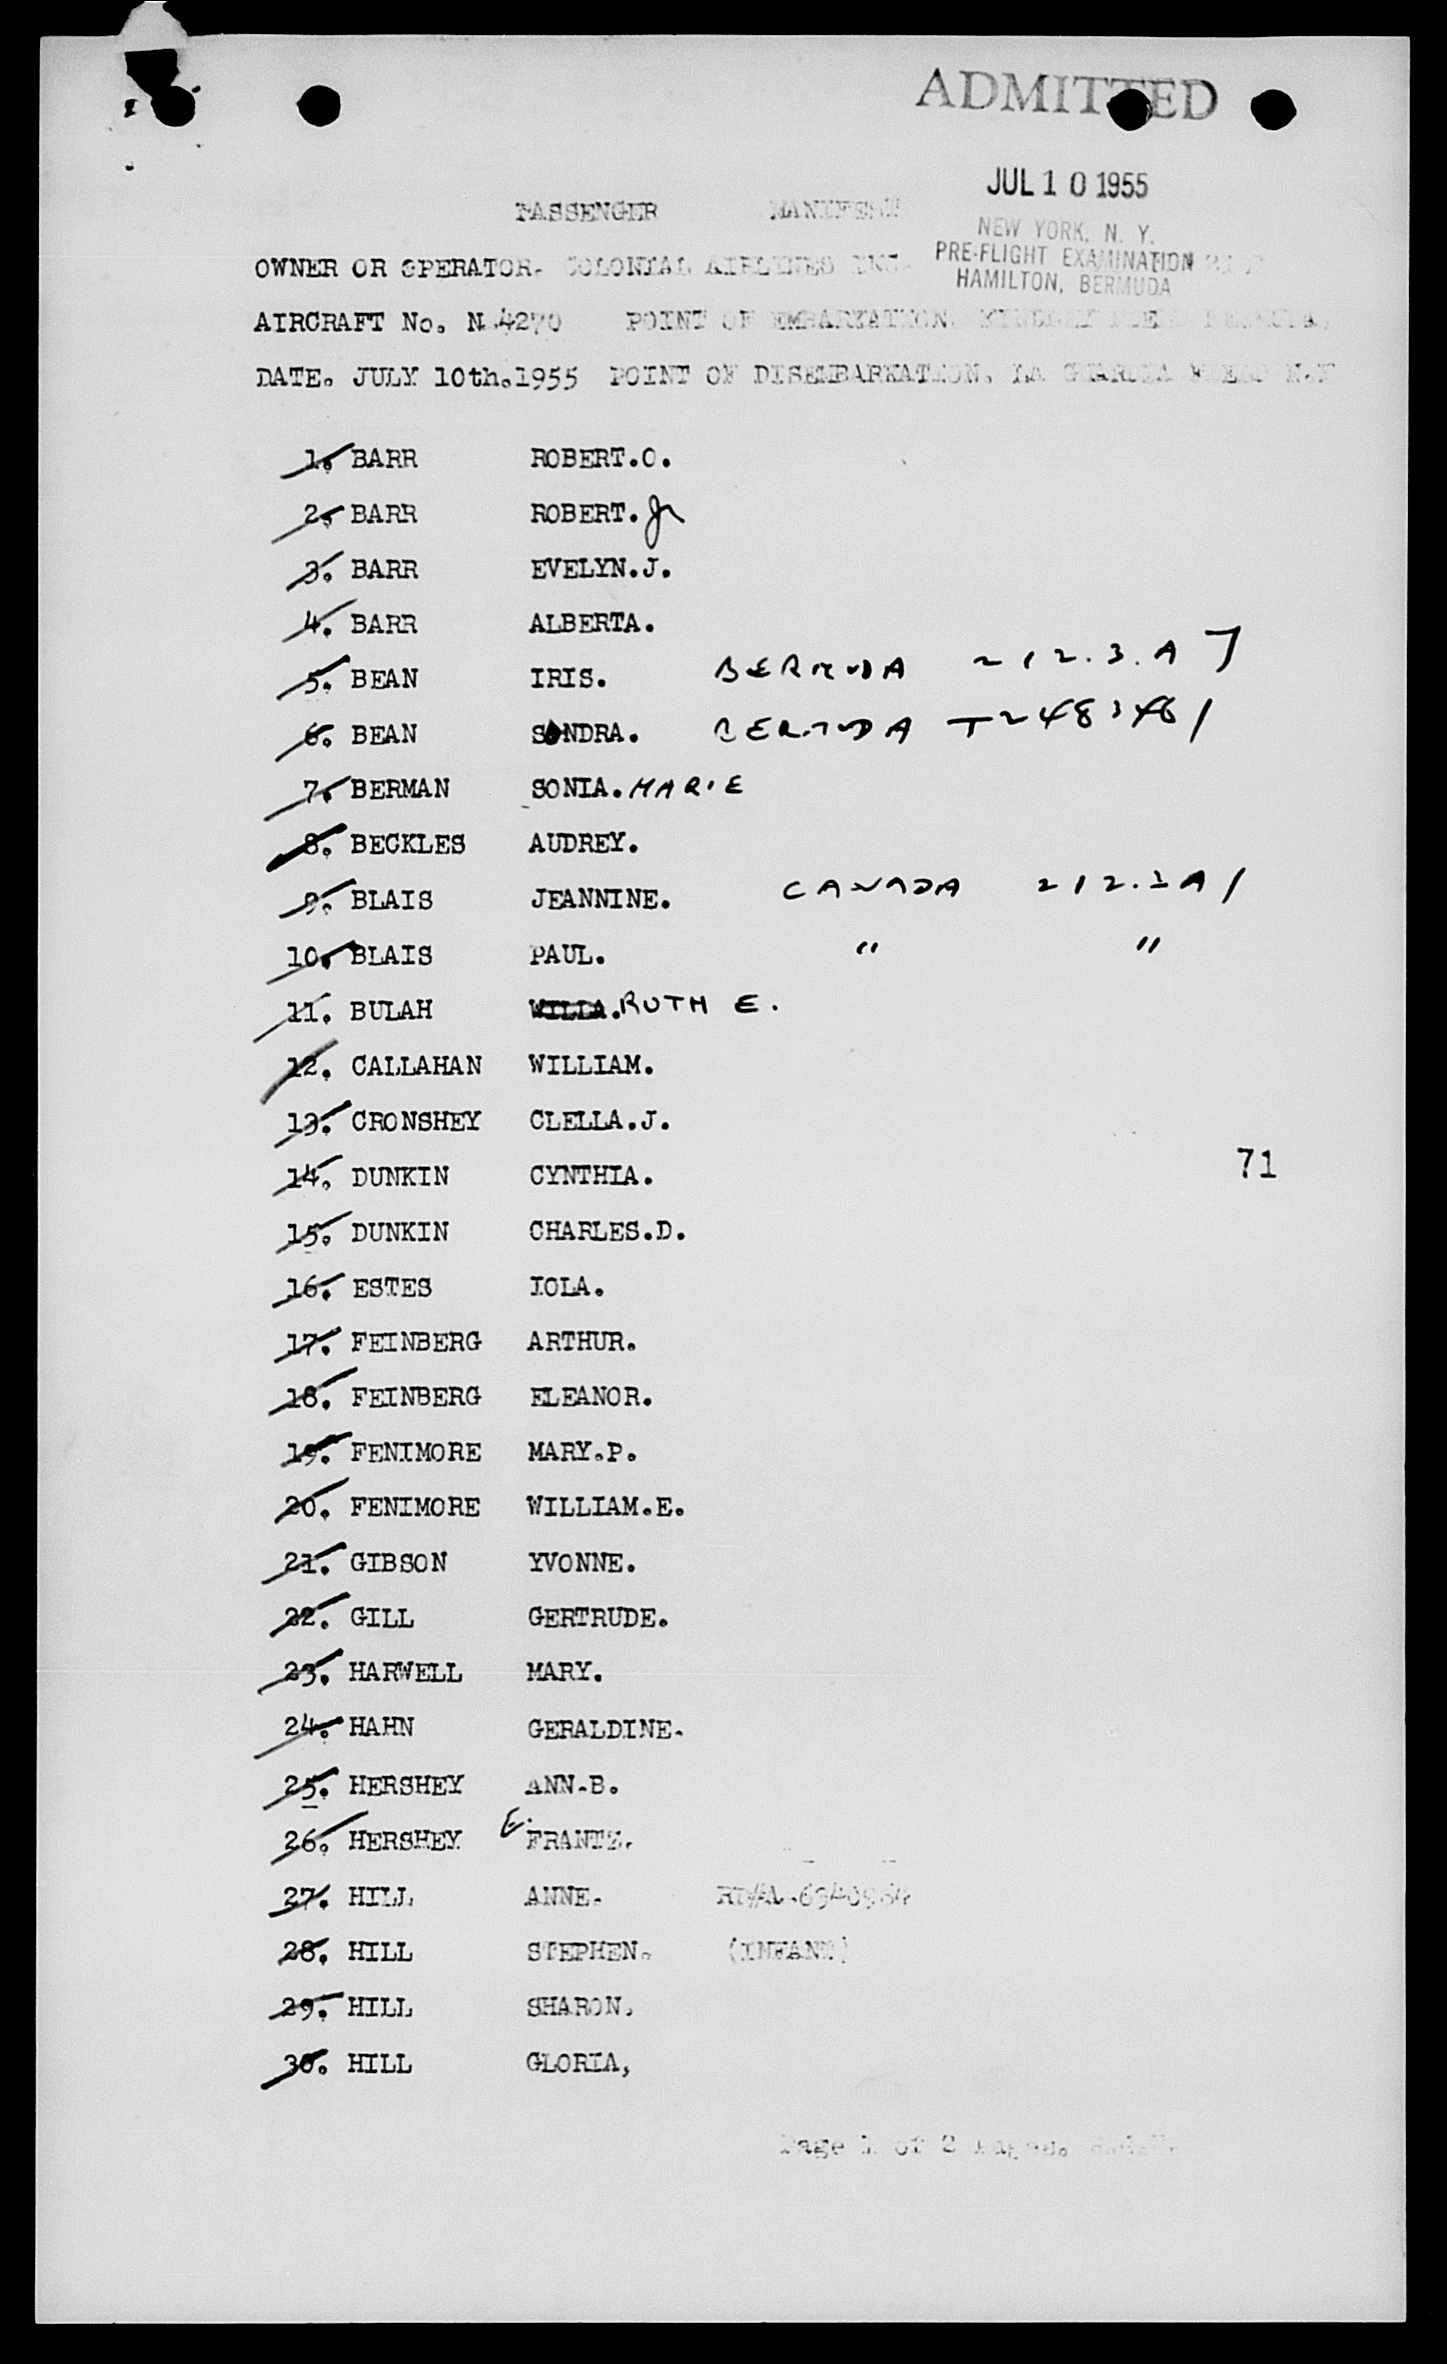 ADMITTED
JUL 10 1955
NEW YORK, N. Y.
PRE-FLIGHT EXAMINATION
HAMILTON, BERMUDA
PASSENGER MANIFEST
OWNER OR OPERATOR. COLONIAL AIRLINES INC.
AIRCRAFT No. N.4270 POINT OF EMBARKATION. KINDLEY FIELD BERMUDA,
DATE. JULY 10th.1955 POINT OF DISEMBARKATION. LA GUARDIA FIELD N.Y
1. BARR ROBERT.O.
2. BARR ROBERT. Jr
3. BARR EVELYN.J.
4. BARR ALBERTA.
5. BEAN IRIS. BERMUDA 212.3.A 7
6. BEAN SANDRA. BERMUDA
7. BERMAN SONIA. MARIE
8. BECKLES AUDREY.
9. BLAIS JEANNINE. CANADA 212.3A1
10. BLAIS PAUL. " "
11. BULAH WILLA. RUTH E.
12. CALLAHAN WILLIAM.
13. CRONSHEY CLELLA.J.
14. DUNKIN CYNTHIA.
71
15. DUNKIN CHARLES.D.
16. ESTES IOLA.
17. FEINBERG ARTHUR.
18. FEINBERG ELEANOR.
19. FENIMORE MARY.P.
20. FENIMORE WILLIAM.E.
21. GIBSON YVONNE.
22. GILL GERTRUDE.
23. HARWELL MARY.
24. HAHN GERALDINE.
25. HERSHEY ANN.B.
26. HERSHEY E. FRANTZ.
27. HILL ANNE.
28. HILL STEPHEN. (INFANT)
29. HILL SHARON.
30. HILL GLORIA,
Page 1 of 2 Pages.